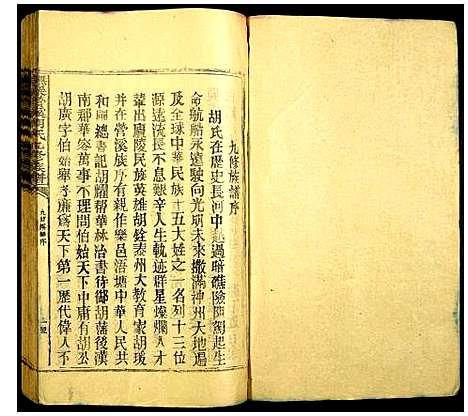 九修族譜序
胡氏在歷史長河中越過暗礁險阻朝起生
命航船永遠駛向光明未來撒滿神州大地遍
及全球中華民族十五大姓之一名列十三位
源遠流長不息艱辛人生軌迹群星燦爛人才
輩出廬陵民族英雄胡銓泰州大教育家胡瑗
并在營溪族序有親作樂邑浯塘中華人民共
和國總書記胡耀幫華林治書待御胡藩後漢
南郡華容萬事不理問伯始天下中庸有胡公
胡廣字伯始舉考廉爲天下第一歷代偉人不
九修譜序